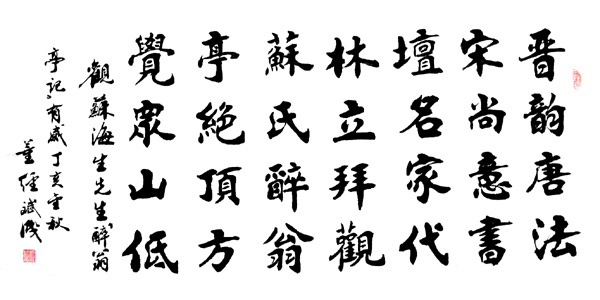 晋韵唐法
宋尚意書
壇名家代
林立拜觀
蘇氏醉翁
亭絶頂方
覺眾山低
觀蘇海生先生醉翁
亭記有感丁亥金秋
董經斌